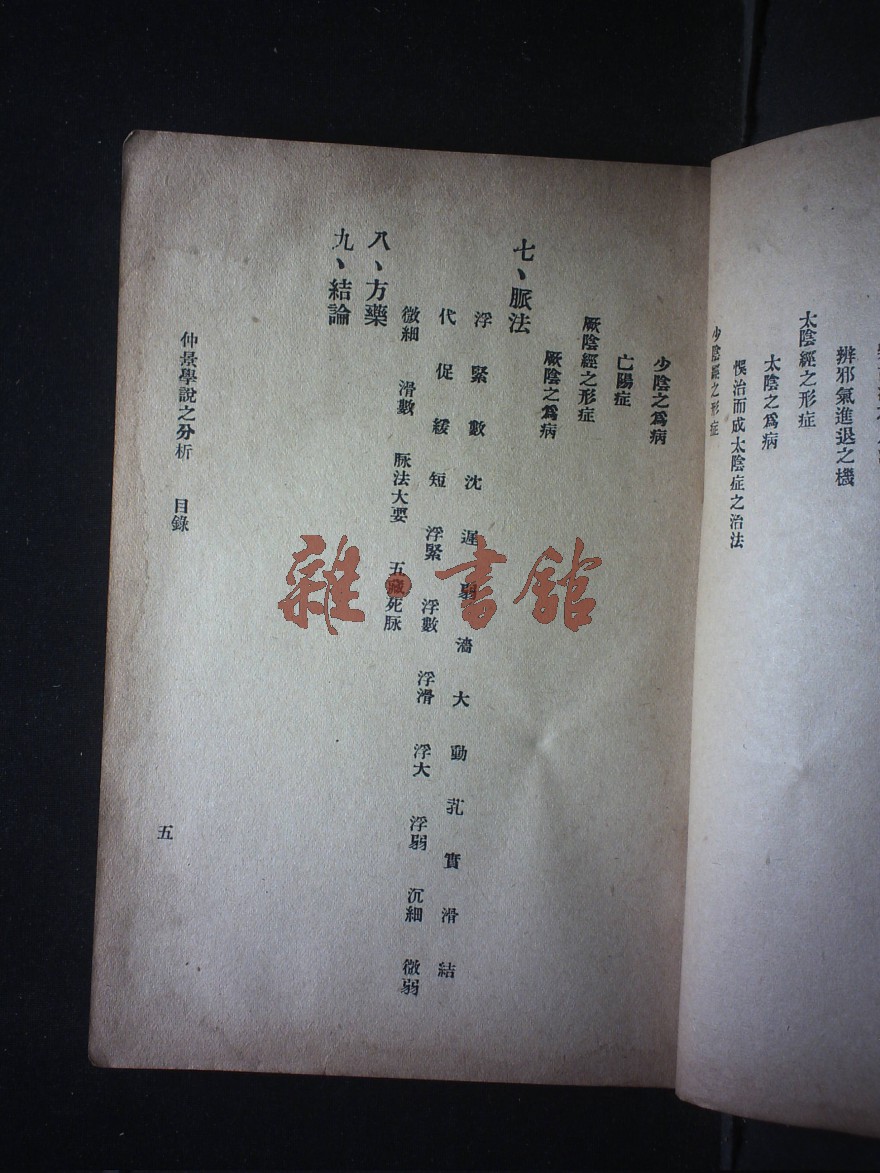 辨邪氣進退之機
太陰經之形症
太陰之爲病
悞治而成太陰症之治法
少陰經之形症
少陰之爲病
亡陽症
厥陰經之形症
厥陰之爲病
七、脈法
浮 緊 數 沈 遲 弱 濇 大 動 芤 實 滑 結
代 促 緩 短 浮緊 浮數 浮滑 浮大 浮弱 沉細 微弱
微細 滑數 脉法大要 五藏死脉
八、方藥
九、結論
仲景學說之分析 目錄
五
雜·書館